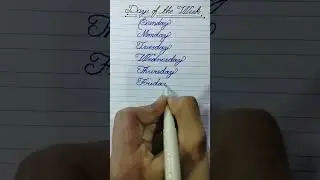 Days of the Week
Sunday
Monday
Tuesday
Wednesday
Thursday
Friday